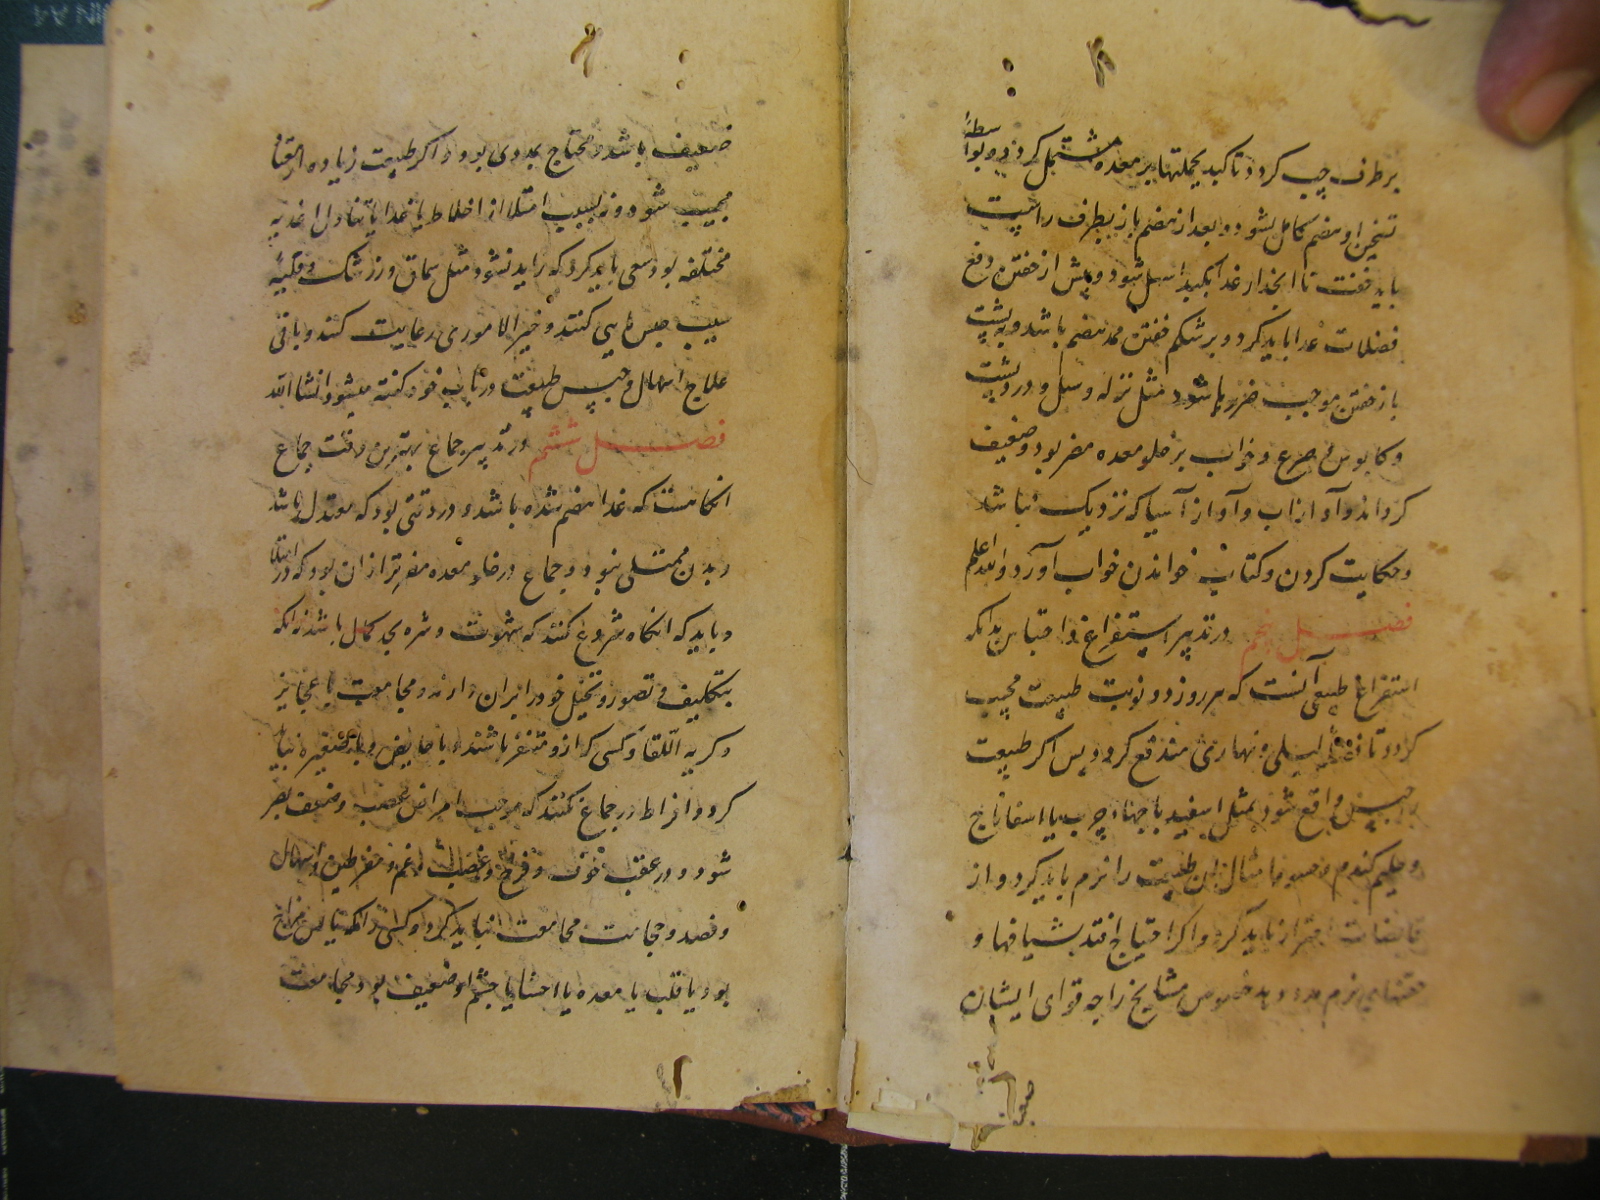 بر طرف چپ کردد تا کبد بجملتها بر معده مشتمل کردد و بواسطهٔ
تسخین او هضم کامل بشود و بعد از هضم باز بطرف راست
باید خفت تا انحدار غذا بکبد اسهل شود و پیش از خفتن دفع
فضلات غذا باید کرد و بر شکم خفتن ممد هضم باشد و به پشت
باز خفتن موجب ضررها شود مثل نزله و سل و درد پشت
و کابوس و صرع و خواب بر خلو معده مضر بود و ضعیف
کرداند و آواز آب و آواز آسیا که نزدیک نباشد
و حکایت کردن و کتاب خواندن خواب آورد والله اعلم
فصل پنجم در تدبیر استفراغ و احتباس بدانکه
استفراغ طبیعی آنست که هر روز دو نوبت طبیعت مجیب
کردد تا فضلهٔ لیلی و نهاری مندفع کردد پس اکر طبیعت
حبس واقع شود بمثل اسفید باجهاء چرب یا اسفاناج
و حلیم کندم و امثال این طبیعت را نرم باید کرد و از
قابضات احتراز باید کرد و اکر احتیاج افتد بشیافها و
حقنهای نرم مدد دهد خصوص مشایخ را چه قوای ایشان
ضعیف
ضعیف باشد و محتاج بمددی بود و اکر طبیعت زیاده از
مجیب شود و نه بسبب امتلا از اخلاط یا غذا یا تناول اغذیه
مختلفه بود سعی باید کرد که زاید نشود مثل سماق و زرشک و
سیب حبس کنند و خیر الامور رعایت کنند و باقی
علاج اسهال و حبس طبیعت در باب خود کفته میشود انشا الله
فصل ششم در تدبیر جماع بهترین وقت جماع
آنکاهست که غذا هضم شده باشد و در وقتی بود که معتدل باشد
و بدن ممتلی نبود و جماع در خلو معده مضرتر از آن بود که در امتلا
و باید که آنکاه شروع کنند که شهوت و شره بحد کمال باشد نه آنکه
بتکلیف و تصور و تخیل خود را بر آن دارند و مجامعت با عجایز
و کریه اللقا و کسی که ازو متنفر باشند و با حایض و با صغیره نباید
کرد و افراط در جماع نکنند که موجب امراض عصب و ضعف بصر
شود و در عقب خوف و فرح و غضب و غم مفرطین و اسهال
و فصد و حجامت مجامعت نباید کرد و کسی را که یابس مزاج
بود یا قلب یا معده یا احشا یا چشم او ضعیف بود مجامعت